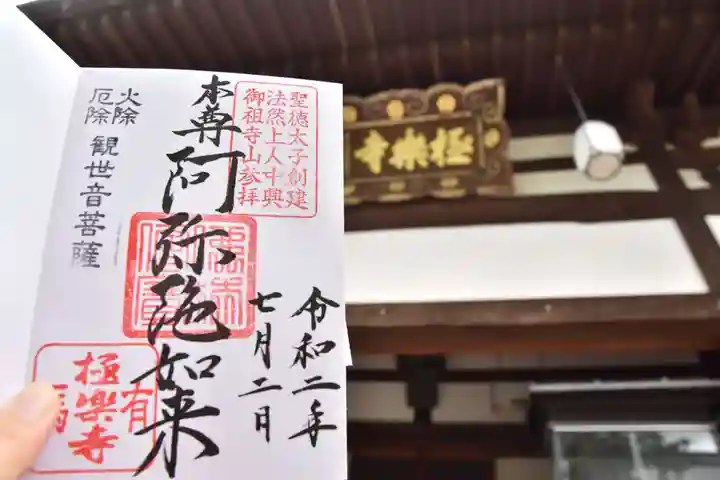 聖徳太子創建
法然上人中興
御祖寺山参拝
本尊阿弥陀如来
令和二年
七月二日
火除
厄除
観世音菩薩
極楽寺
有
極樂寺